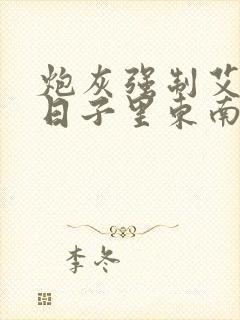 炮灰强制艾
日子里东南
李冬